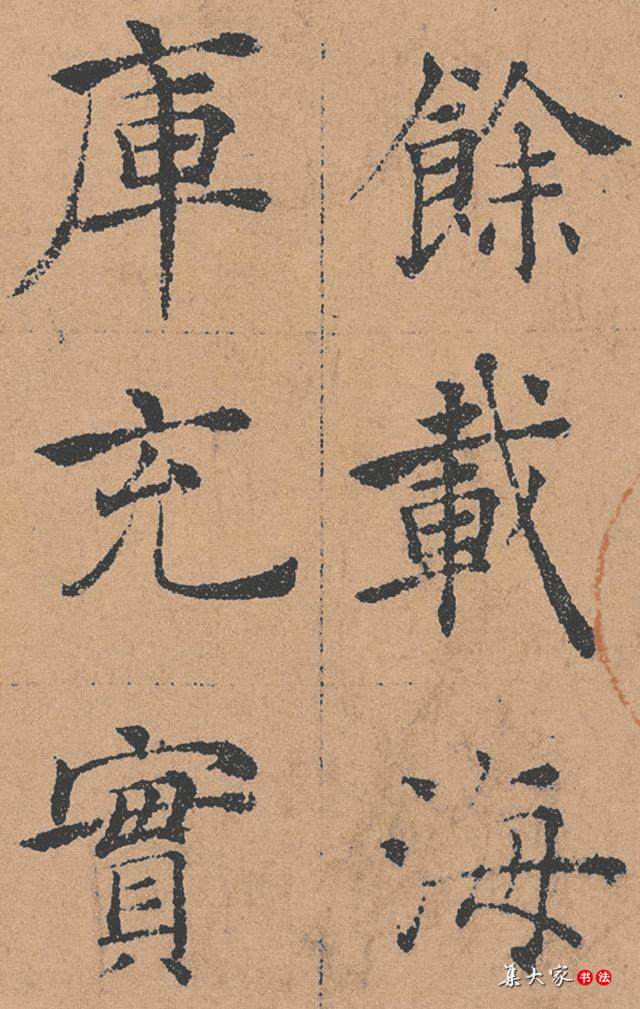 餘載海
庫充實
集大家书法